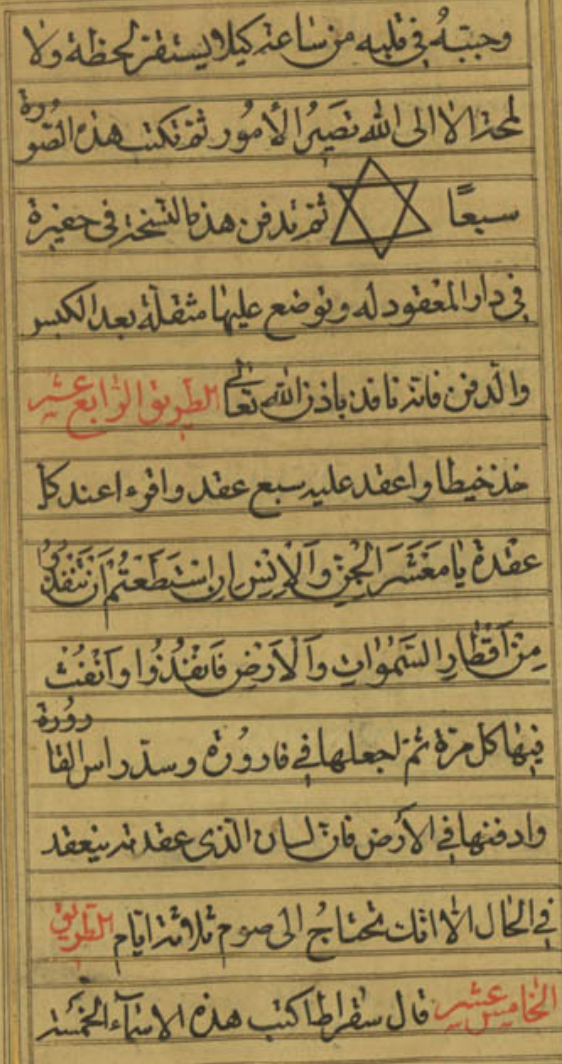 وحبته في قلبه من ساعته كيلا يستقر لحظة ولا
لمحة الا الى الله تصير الأمور ثم تكتب هذه الصورة
سبعًا ثم تدفن هذه النسخة في حفيرة
في دار المعقود له وتوضع عليها مثقلة بعد الكبس
والدفن فانه نافذ باذن الله تعالى الطريق الرابع عشر
خذ خيطا واعقد عليه سبع عقد واقرء اعند كل
عقدة يَا مَعْشَرَ الْجِنِّ وَالْاِنْسِ اِنِ اسْتَطَعْتُمْ اَنْ تَنْفُذُوا
مِنْ اَقْطَارِ السَّمٰوَاتِ وَالْاَرْضِ فَانْفُذُوا وَانْفُثْ
فيها كل مرة ثم اجعلها في قارورة وسد راس القارورة
وادفنها في الأرض فان لسان الذى عقدته ينعقد
في الحال الا انك تحتاج الى صوم ثلاثة ايام الطريق
الخامس عشر قال سقراط اكتب هذه الاسمآء الخمسة